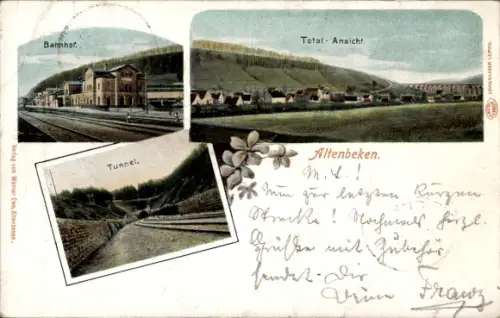 Bahnhof.
Total-Ansicht.
Tunnel.
Altenbeken.
M. L.!
Nun zur letzten kurzen
Strecke! Nochmals herzl.
Grüße mit Zubehör
sendet Dir
Deine Franz
Verlag von Werner